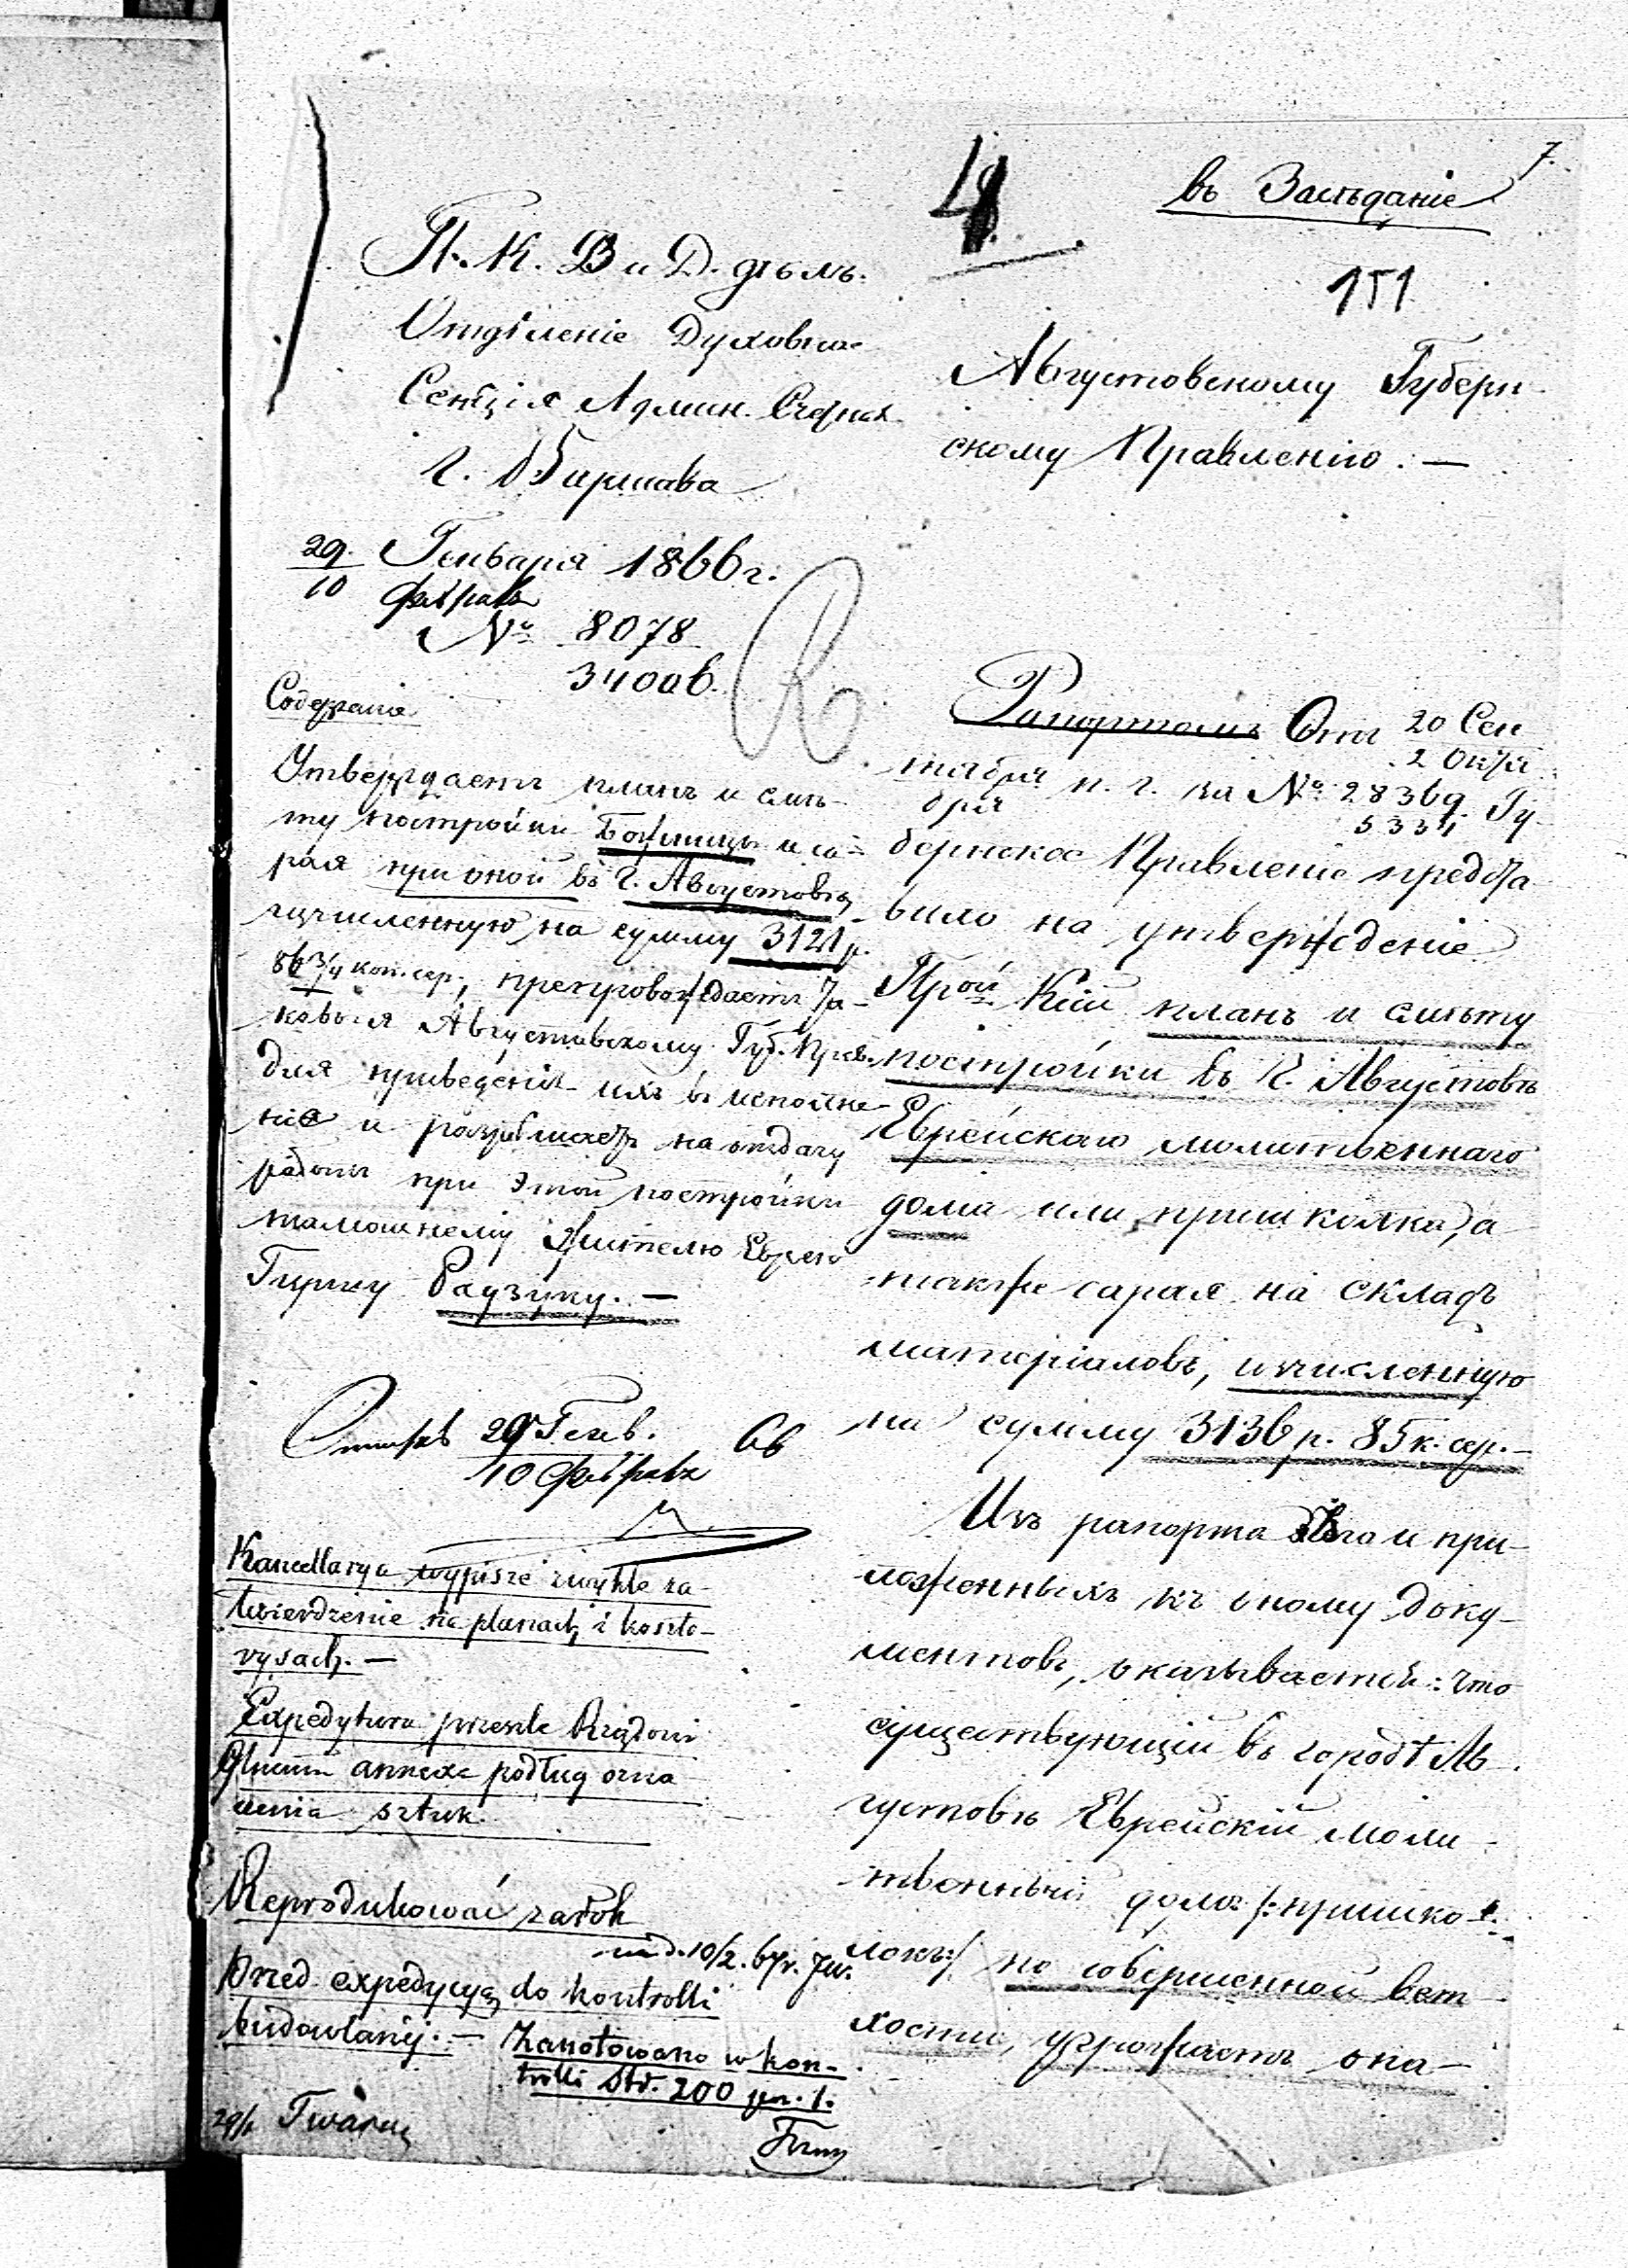 7.
48
въ Засѣданіе
151
П. К. В и Д. дѣлъ.
Отдѣленіе Духовное
Секція Админ.
г. Варшава
29. Генваря 1866 г.
10 Февраля
№ 8078
34006.
Содержаніе
Утверждаетъ планъ и смѣ-
ту постройки Божницы и са-
рая при оной въ г. Августовѣ,
исчисленную на сумму 3121 р.
86 3/4 коп. сер., препровождаетъ та-
ковыя Августовскому Губ. Прав.
для приведенія ихъ въ исполне-
ніе и разрѣшаетъ на отдачу
работъ при этой постройки
тамошнему жителю Еврею
Гиршу Радзуку. —
29 Генв. 66
10 Февраля
Kancellarya wypisze zwykłe za-
twierdzenie na planach i koszto-
rysach. —
Expedytura prześle Rządowi
Gubern annexa podług ozna
czenia sztuk.
Reprodukować zarok
Przed expedycyą do kontrolli
budowlanej. —
Zanotowano w kon-
trolli Str. 200
Августовскому Губерн-
скому Правленію. —
Рапортомъ Отъ 20 Сен
2 Октя
тября н. г. за № 28369. Гу-
бря 5334
бернское Правленіе предста
вило на утвержденіе
Прой Кій планъ и смѣту
постройки въ г. Августовѣ
Еврейскаго молитвеннаго
дома или пришколка, а
также сарая на складъ
матеріаловъ, исчисленную
на сумму 3136 р. 85 к. сер. —
Изъ рапорта и при-
ложенныхъ къ оному доку-
ментовъ, оказывается: что
существующій въ городѣ Ав-
густовѣ Еврейскій моли-
твенный домъ /: пришко-
локъ :/ по совершенной вет-
хости, угрожаетъ опа-